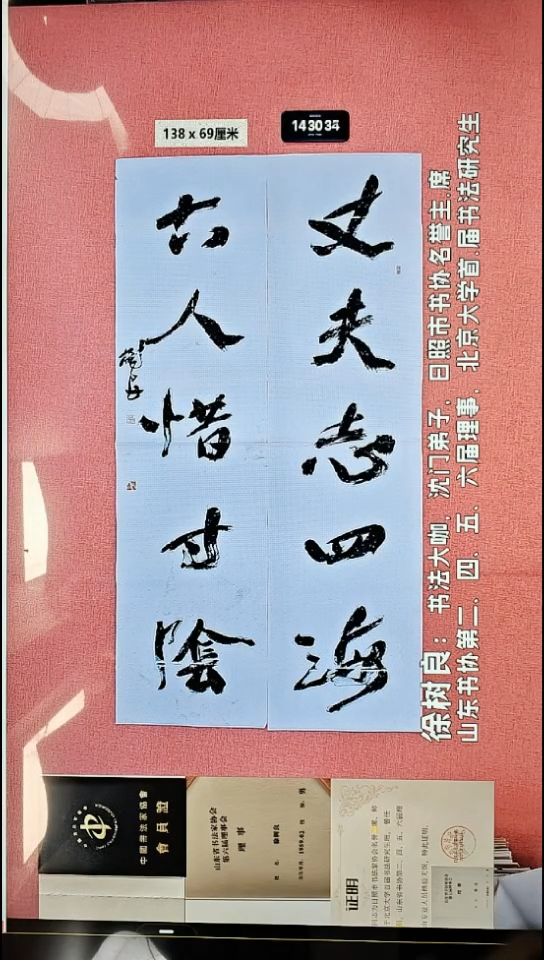 138 x 69厘米
14 30 34
丈夫志四海
古人惜寸陰
徐树良：书法大咖，沈门弟子，日照市书协名誉主席
山东书协第二、四、五、六届理事，北京大学首届书法研究生
中國書法家協會
會員證
山东省书法家协会
第六届理事会
理事
证明